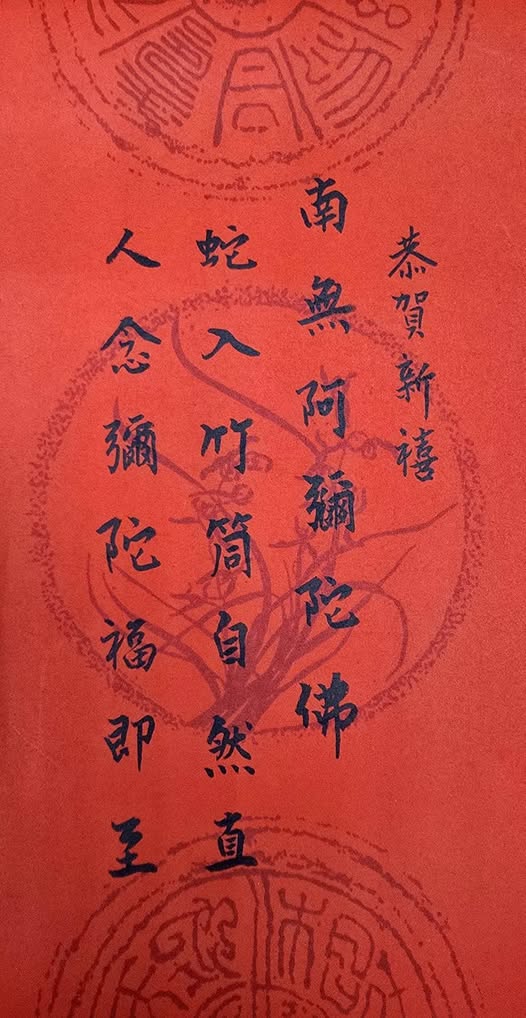 恭賀新禧
南無阿彌陀佛
蛇入竹筒自然直
人念彌陀福即至